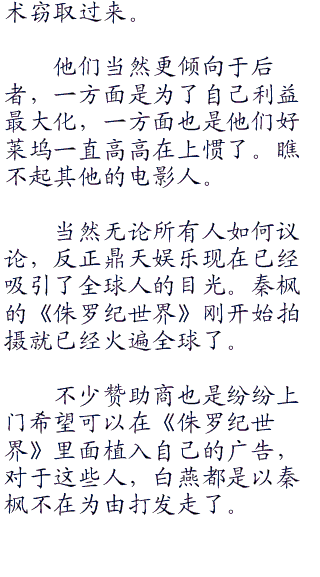 术窃取过来。
他们当然更倾向于后
者，一方面是为了自己利益
最大化，一方面也是他们好
莱坞一直高高在上惯了。瞧
不起其他的电影人。
当然无论所有人如何议
论，反正鼎天娱乐现在已经
吸引了全球人的目光。秦枫
的《侏罗纪世界》刚开始拍
摄就已经火遍全球了。
不少赞助商也是纷纷上
门希望可以在《侏罗纪世
界》里面植入自己的广告，
对于这些人，白燕都是以秦
枫不在为由打发走了。